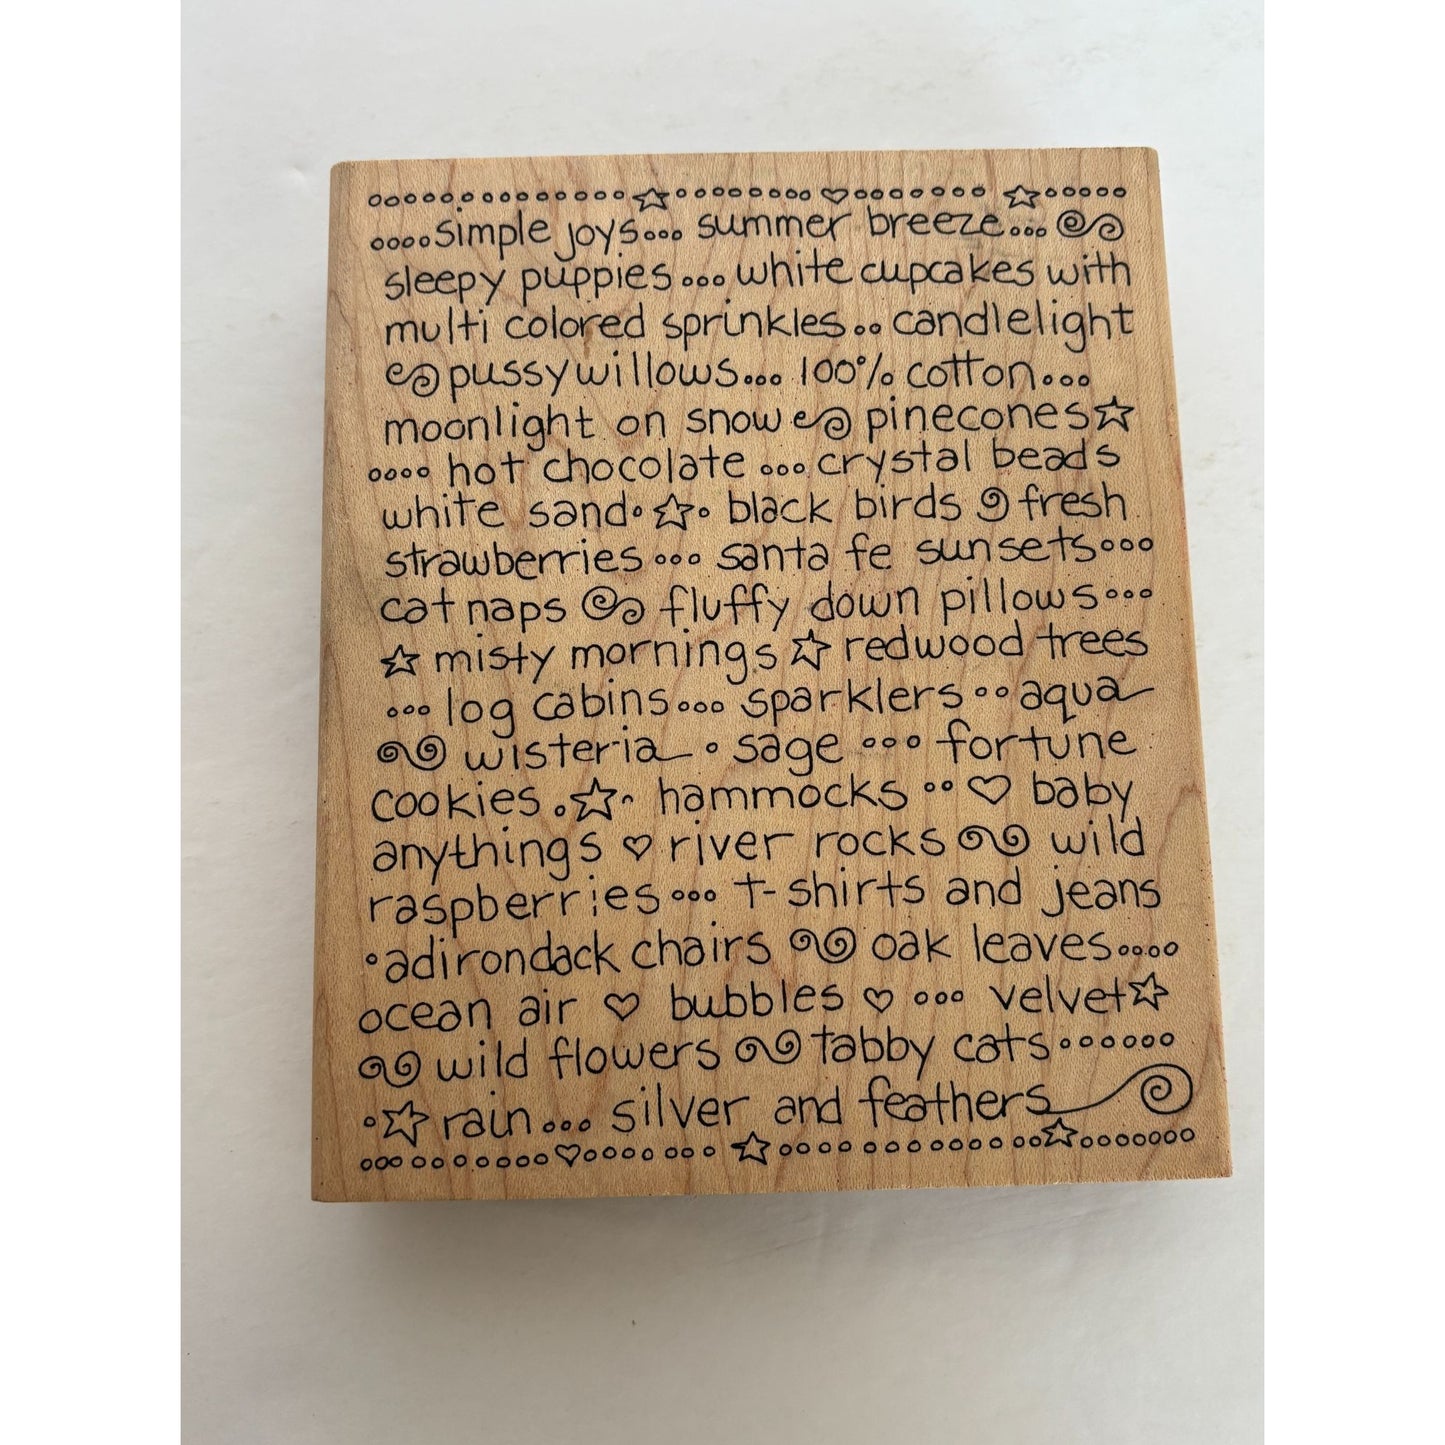 simple joys... summer breeze...
sleepy puppies... white cupcakes with
multi colored sprinkles.. candlelight
pussywillows... 100% cotton...
moonlight on snow pinecones
.... hot chocolate ... crystal beads
white sand black birds fresh
strawberries ... santa fe sunsets...
cat naps fluffy down pillows...
misty mornings redwood trees
... log cabins... sparklers .. aqua
wisteria . sage ... fortune
cookies . hammocks .. baby
anythings river rocks wild
raspberries... t-shirts and jeans
adirondack chairs oak leaves....
ocean air bubbles ... velvet
wild flowers tabby cats......
rain... silver and feathers